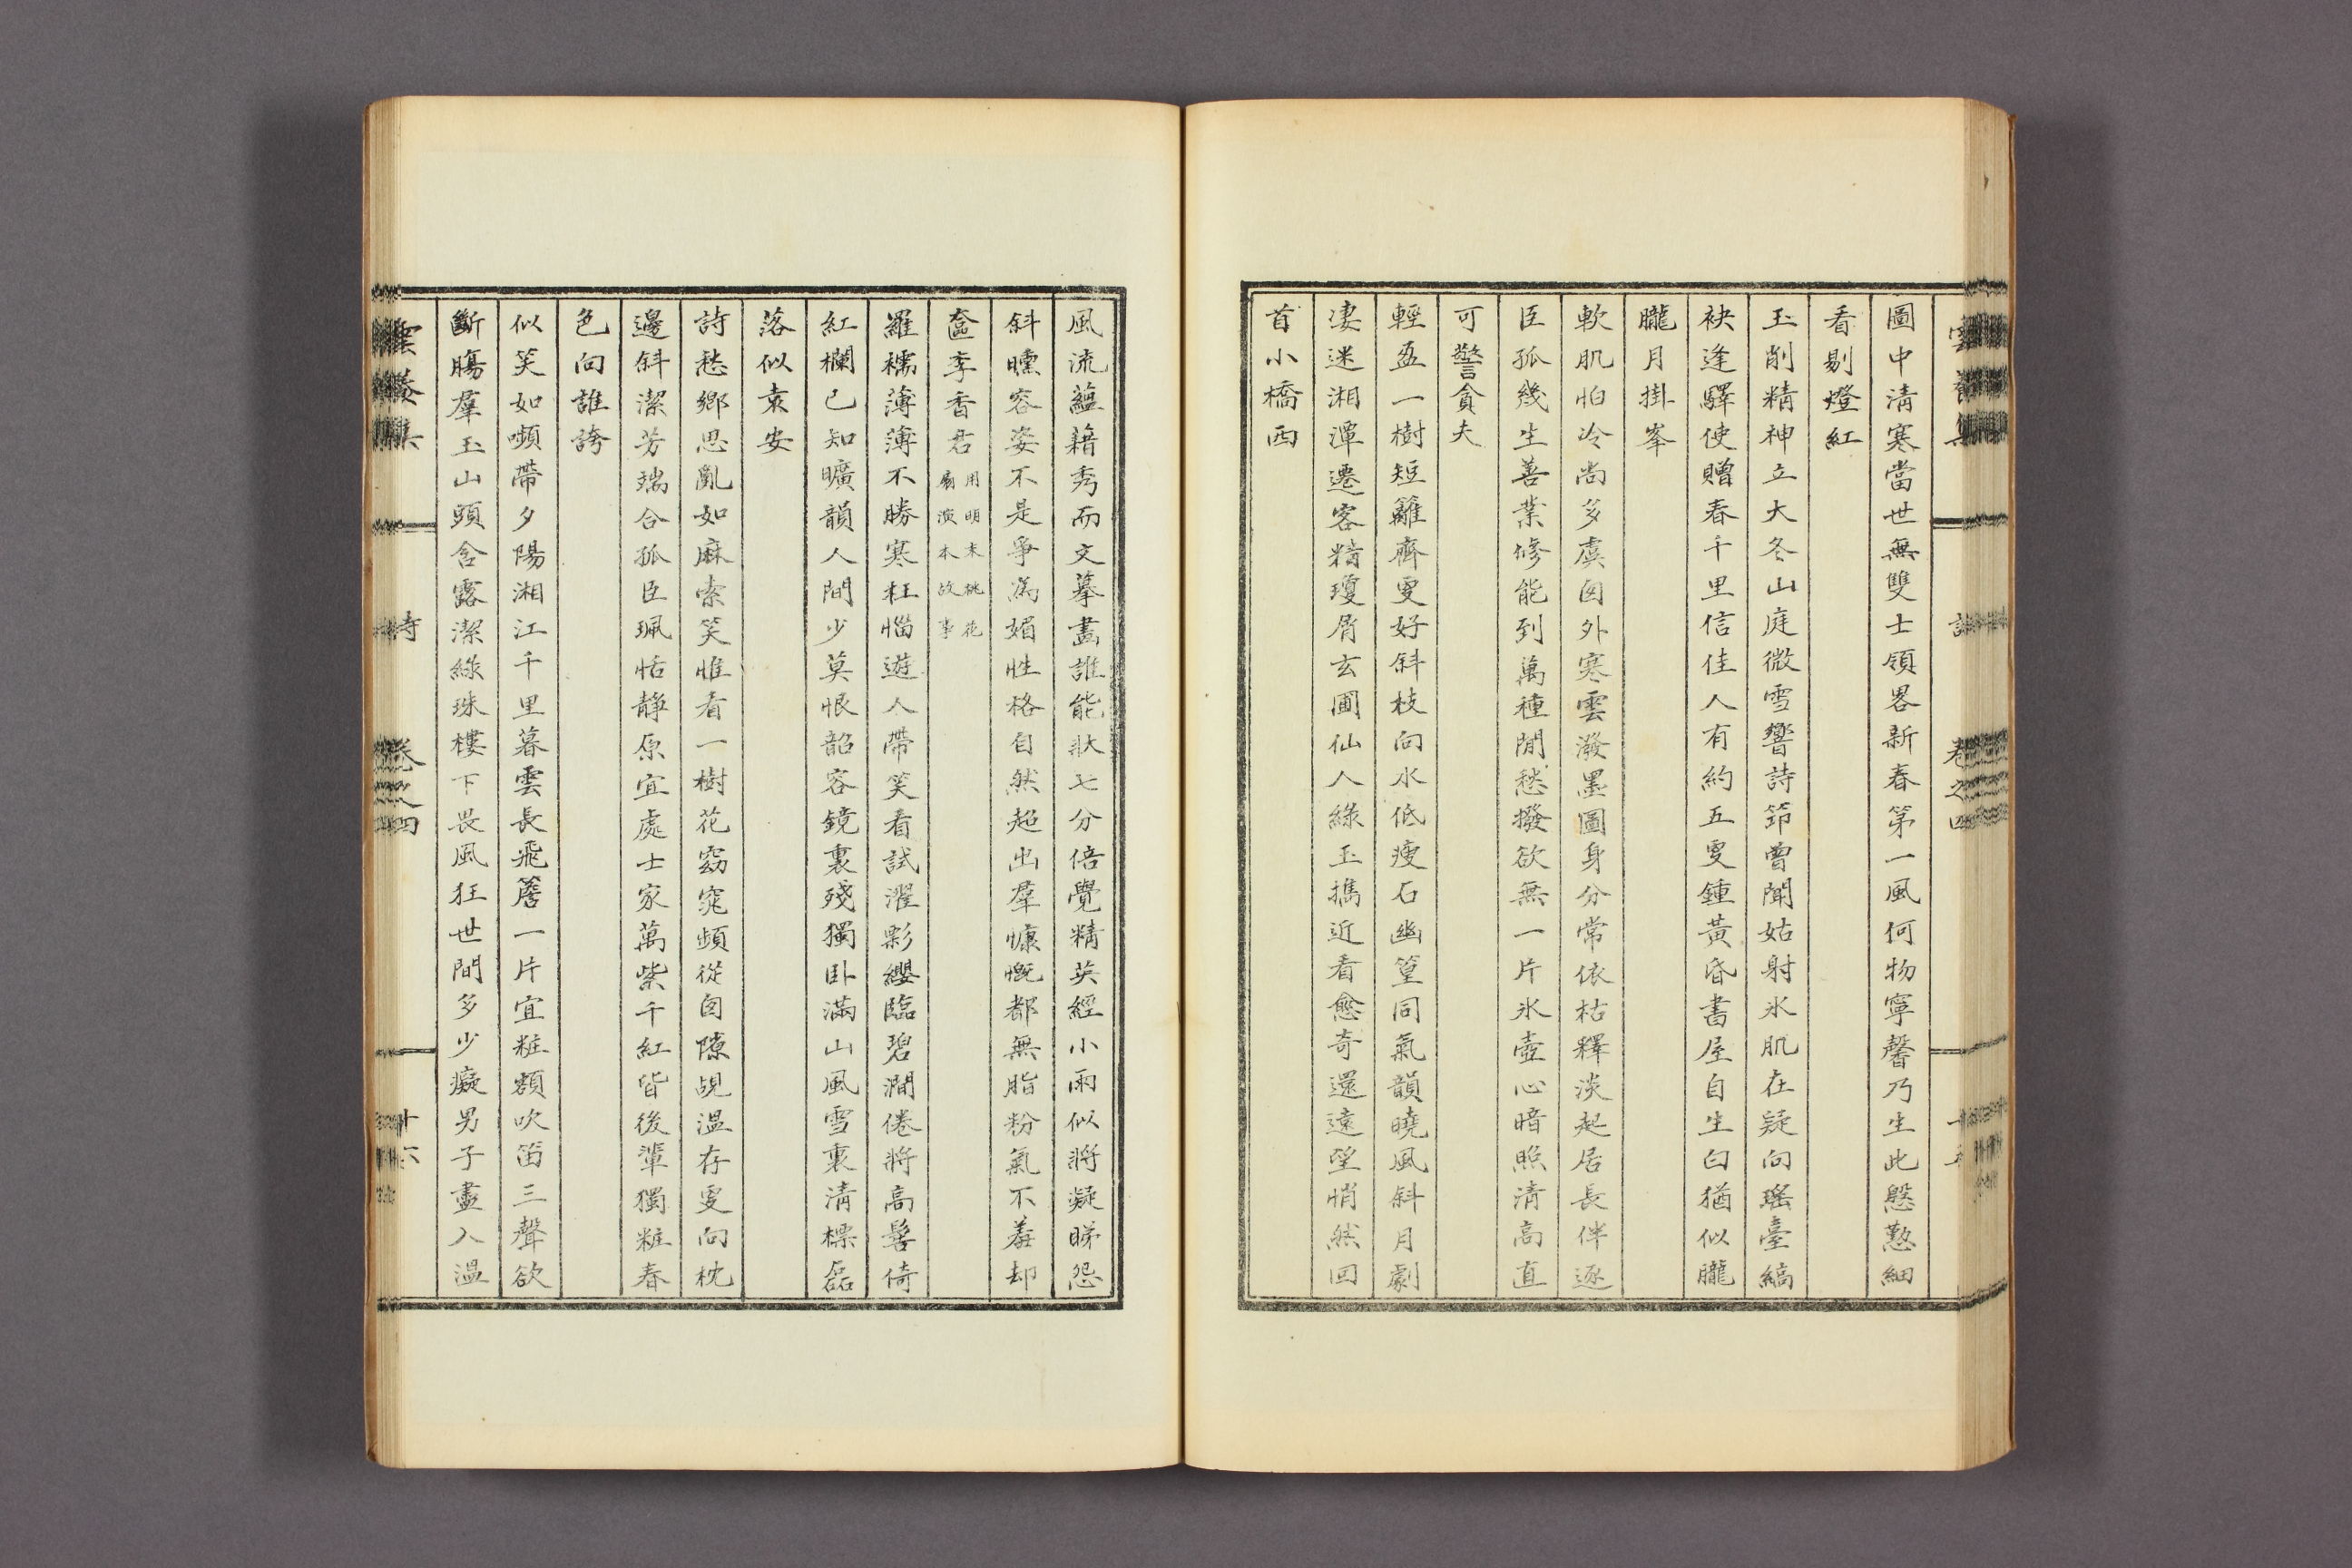 圖中淸寒當世無雙士領畧新春第一風何物寧馨乃生此慇懃細
看剔燈紅
玉削精神立大冬山庭微雪響詩筇曾聞姑射氷肌在疑向瑤臺縞
袂逢驛使贈春千里信佳人有約五更鍾黃昏書屋自生白猶似朧
朧月掛峯
軟肌怕冷尙多虞囱外寒雲潑墨圖身分常依枯釋淡起居長伴逐
臣孤幾生善業修能到萬種閒愁撥欲無一片氷壺心暗照淸高直
可警貪夫
輕盈一樹短籬齊更好斜枝向水低瘦石幽篁同氣韻曉風斜月劇
凄迷湘潭遷客精瓊屑玄圃仙人綠玉攜近看愈奇還遠望悄然回
首小橋西
風流蘊籍秀而文摹畵誰能狀七分倍覺精英經小雨似將凝睇怨
斜曛容姿不是爭爲媚性格自然超出羣慷慨都無脂粉氣不羞却
奩李香君用明末桃花扇演本故事
羅襦薄薄不勝寒枉惱遊人帶笑看試濯彩纓臨碧澗倦將高髻倚
紅欄已知曠韻人間少莫恨韶容鏡裏殘獨卧滿山風雪裏淸標磊
落似袁安
詩愁鄕思亂如麻索笑惟看一樹花窈窕頻從囱隙覘溫存更向枕
邊斜潔芳瑞合孤臣珮恬靜原宜處士家萬紫千紅皆後輩獨粧春
色向誰誇
似笑如嚬帶夕陽湘江千里暮雲長飛簷一片宜粧額吹笛三聲欲
斷膓羣玉山頭含露潔綠珠樓下畏風狂世間多少癡男子盡入溫
卷之四
十六